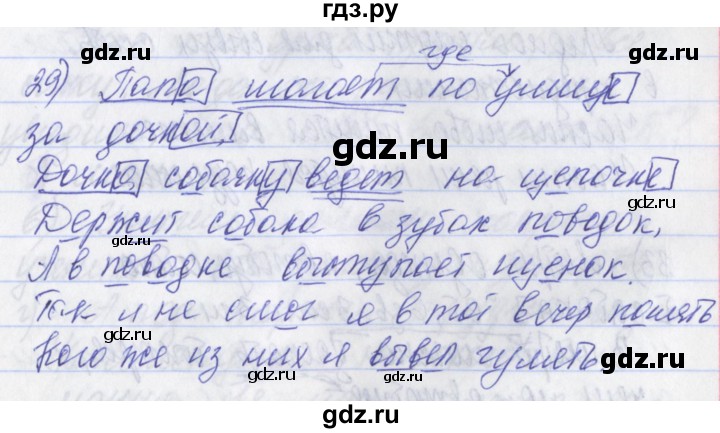 гдз.ру
где
29) Папа шагает по улице
за дочкой,
Дочка собачку ведет на цепочке
Держит собака в зубах поводок,
А в поводке выступает щенок.
Так и не смог я в тот вечер понять
Кого же из них я вывел гулять.
gdz.ru
gdz.ru
gdz.ru
gdz.ru
gdz.ru
gdz.ru
gdz.ru
gdz.ru
gdz.ru
gdz.ru
gdz.ru
gdz.ru